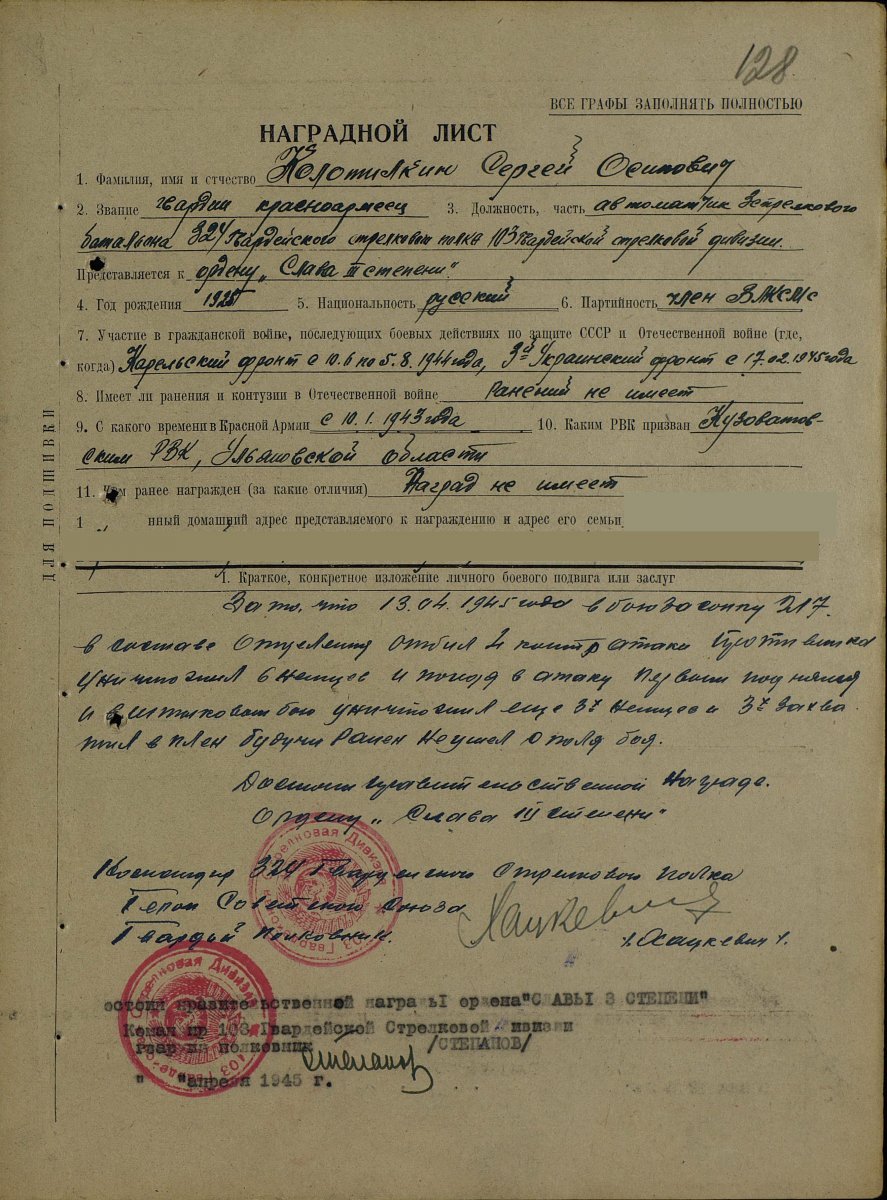 128
ВСЕ ГРАФЫ ЗАПОЛНЯТЬ ПОЛНОСТЬЮ
НАГРАДНОЙ ЛИСТ
1. Фамилия, имя и отчество Колотилкин Сергей Осипович
2. Звание гвардии красноармеец 3. Должность, часть автоматчик 3 стрелкового
батальона 324 Гвардейского стрелкового полка 103 Гвардейской стрелковой дивизии.
Представляется к ордену „Слава III степени"
4. Год рождения 1925 5. Национальность русский 6. Партийность член ВЛКСМ
7. Участие в гражданской войне, последующих боевых действиях по защите СССР и Отечественной войне (где,
когда) Карельский фронт с 10.6 по 5.8.1944 года, 3й Украинский фронт с 17.02.1945 года
8. Имеет ли ранения и контузии в Отечественной войне Ранений не имеет
9. С какого времени в Красной Армии с 10.1.1943 года 10. Каким РВК призван Кузоватов-
ским РВК, Ульяновской области
11. Чем ранее награжден (за какие отличия) Наград не имеет
1 нный домашний адрес представляемого к награждению и адрес его семьи
ДЛЯ ПОДШИВКИ
1. Краткое, конкретное изложение личного боевого подвига или заслуг
За то, что 13.04.1945 года в бою за сопку 217.
в составе Отделения отбил 4 контратаки Противника
уничтожил 6 немцев и поход в атаку Первым поднялся
и в штыковом бою уничтожил еще 3х немцев и 3х захва
тил в плен будучи Ранен Не ушел с поля боя.
Достоин Правительственной Награде.
Ордену „Слава III степени"
Командир 324 Гвардейского Стрелкового Полка
Герой Советского Союза
Гвардии Полковник. Хацкевич /.Хацкевич/.
103 Гвардейская Стрелковая Дивизия
103 Гвардейская Стрелковая Дивизия
остоин правительственной награды ордена "СЛАВЫ 3 СТЕПЕНИ"
Коман ир 103 Гвардейской Стрелковой ивизии
гвар ии полковник Степанов /СТЕПАНОВ/
" "апреля 1945 г.